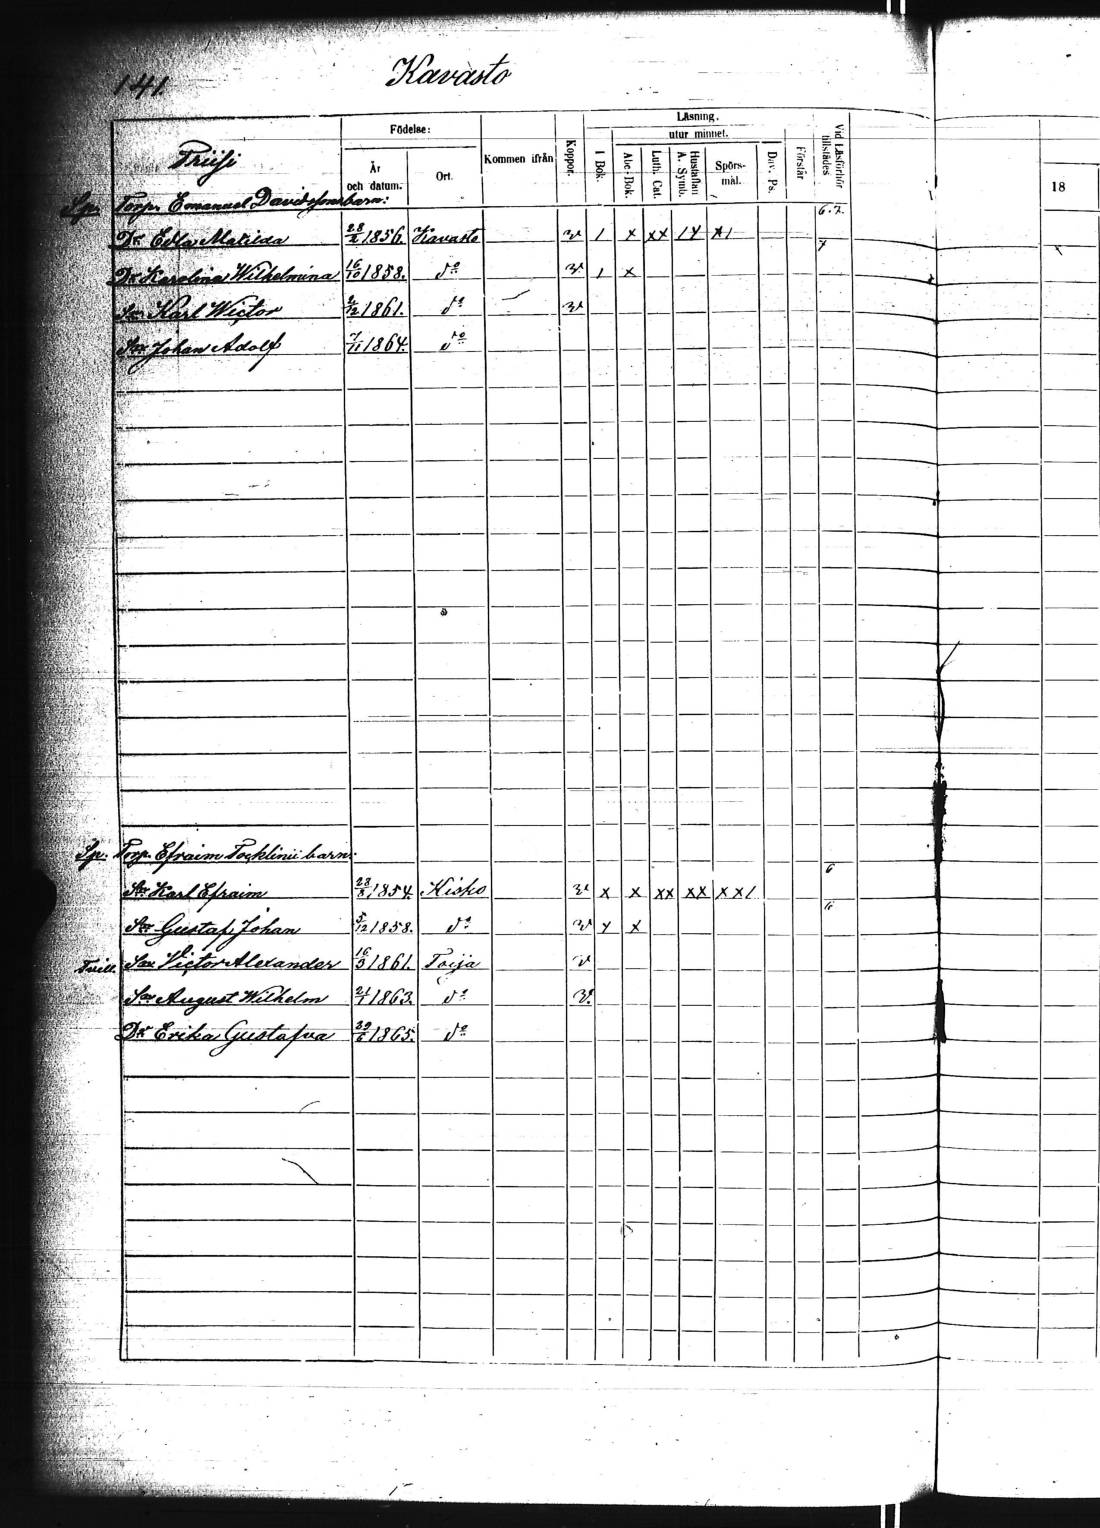 141.
Kavasto
Födelse:
Läsning.
utur minnet.
År och datum.
Ort.
Kommen ifrån
Koppor.
I Bok.
Abc-Bok.
Luth. Cat.
Hustaflan A. Symb.
Spörs-mål.
Dav. Ps.
Förstår
Vid Läsförhör tillstädes
18
Sp. Torp. Emanuel Davidssons barn:
6. 7.
Dr Edla Matilda 28/2 1856. Kavasto v 1 x xx 1x x1
7
Dr Karolina Wilhelmina 16/10 1858. do v 1 x
Son Karl Wictor 2/12 1861. do v
Son Johan Adolf 7/11 1864. do
Sp. Torp. Efraim Tocklinii barn:
6
Son Karl Efraim 28/8 1854. Kisko v x x xx xx xx1
6
Son Gustaf Johan 5/12 1858. do v x x
Tvill. Son Victor Alexander 16/3 1861. Toija v
Son August Wilhelm 21/1 1863. do v.
Dr Erika Gustafva 29/6 1865. do